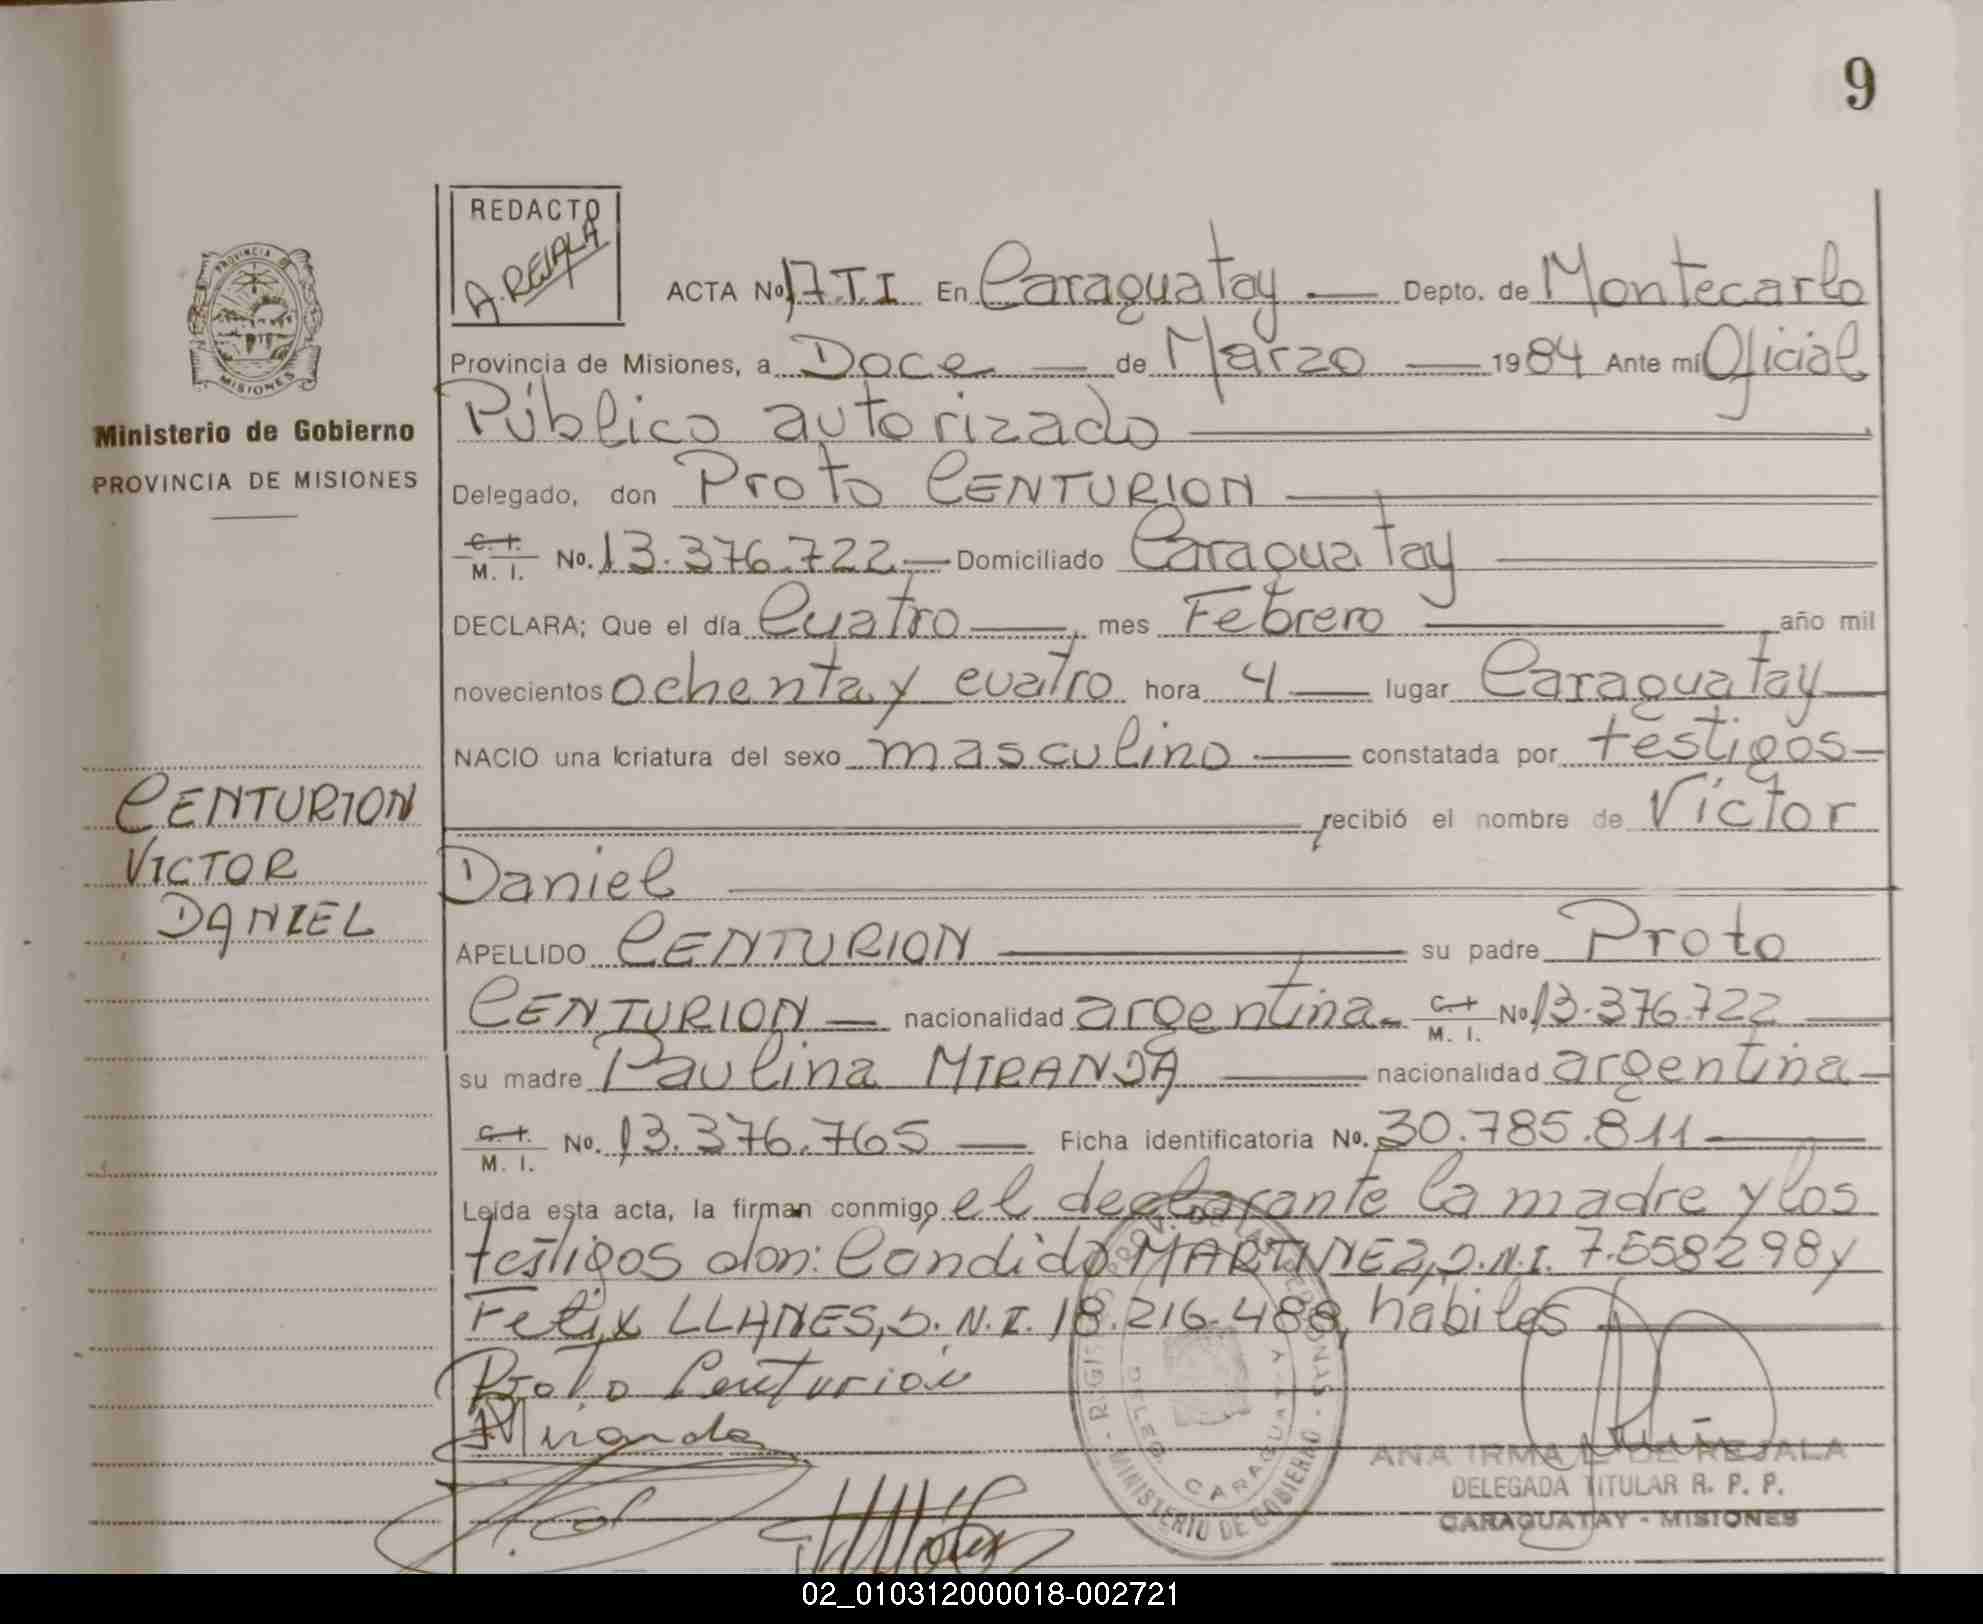 9
REDACTO
A. REJALA
PROVINCIA DE
MISIONES
Ministerio de Gobierno
PROVINCIA DE MISIONES
CENTURION
VICTOR
DANIEL
ACTA No 17.T.I En Caraguatay Depto. de Montecarlo
Provincia de Misiones, a Doce de Marzo 1984 Ante mí Oficial
Público autorizado
Delegado, don Proto CENTURION
C. I. M. I. No. 13.376.722 Domiciliado Caraguatay
DECLARA; Que el día Cuatro, mes Febrero año mil
novecientos ochenta y cuatro hora 4 lugar Caraguatay
NACIO una criatura del sexo masculino constatada por testigos
recibió el nombre de Víctor
Daniel
APELLIDO CENTURION su padre Proto
CENTURION nacionalidad argentina C. I. M. I. No 13.376.722
su madre Paulina MIRANDA nacionalidad argentina
C. I. M. I. No. 13.376.765 Ficha identificatoria No. 30.785.811
Leída esta acta, la firman conmigo el declarante la madre y los
testigos don: Candido MARTINEZ, D.N.I. 7.558298 y
Felix LLANES, D.N.I. 18.216.488, hábiles
Proto Centurión
Miranda
MINISTERIO DE GOBIERNO
DELEG. CARAGUATAY
ANA IRMA L. DE REJALA
DELEGADA TITULAR R. P. P.
CARAGUATAY - MISIONES
02_010312000018-002721